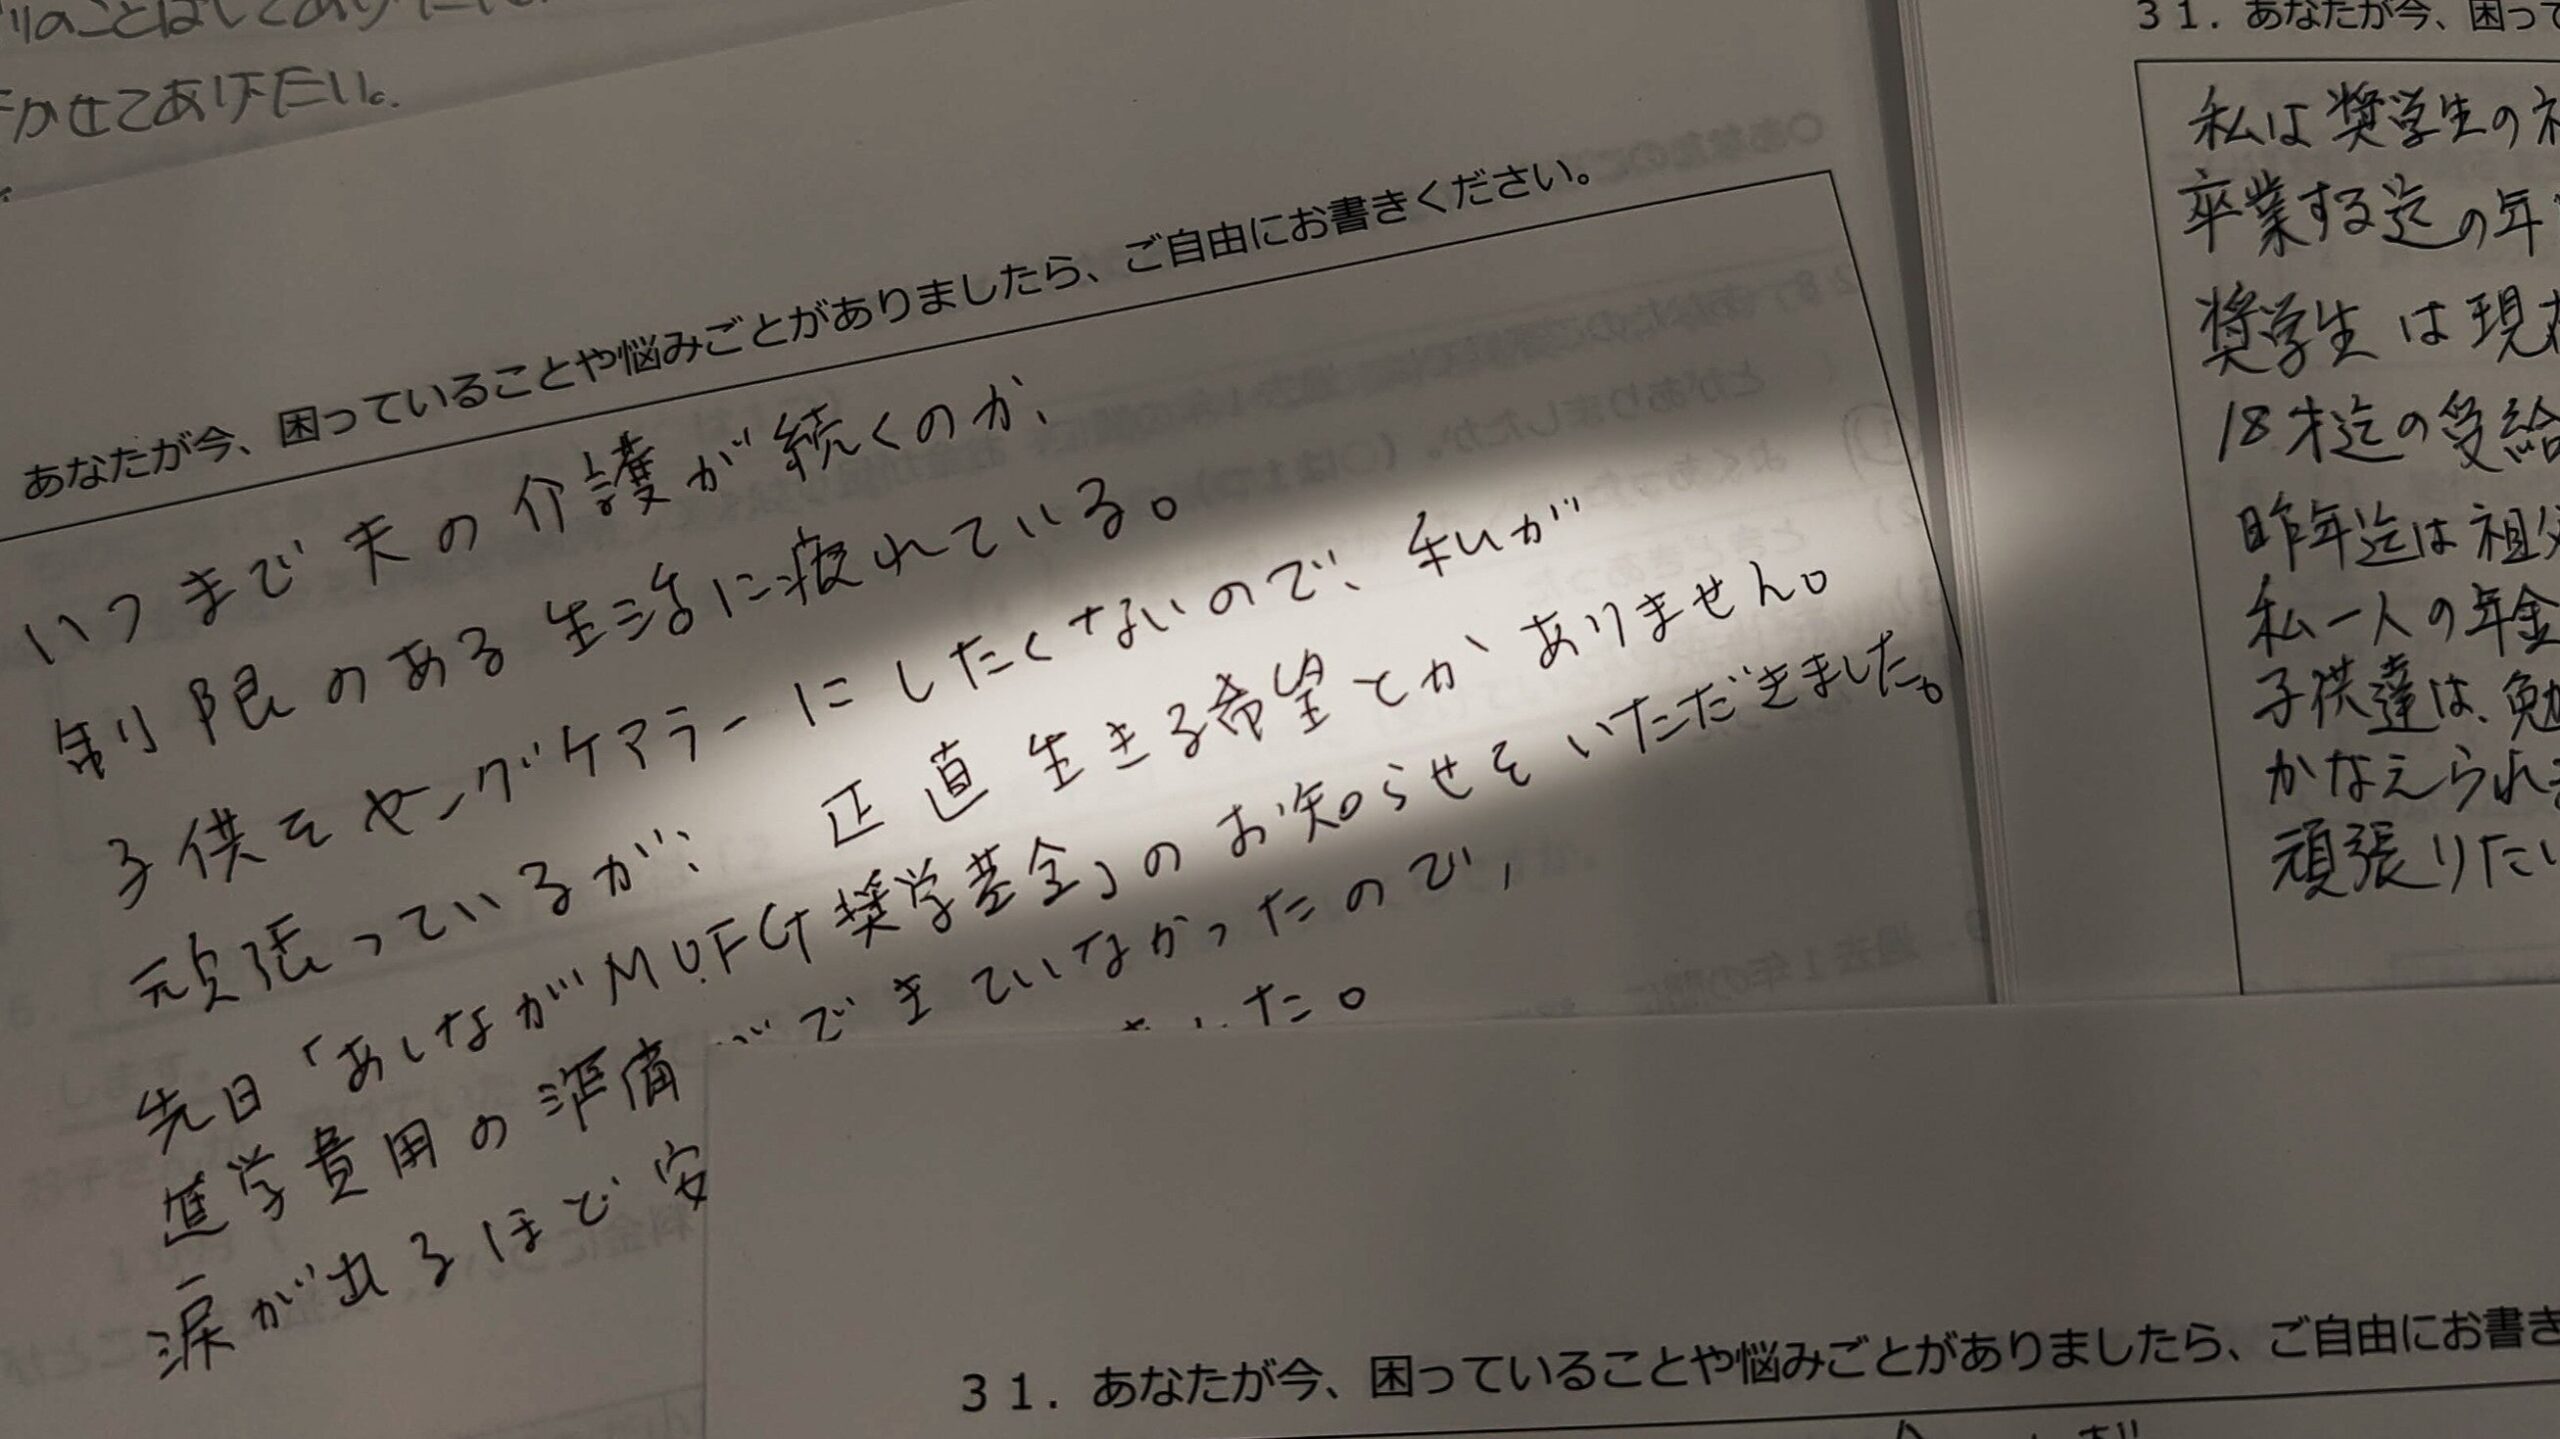 かせてあげたい。
あなたが今、困っていることや悩みごとがありましたら、ご自由にお書きください。
いつまで夫の介護が続くのか、
制限のある生活に疲れている。
子供をヤングケアラーにしたくないので、私が
頑張っているが、正直生きる希望とかありません。
先日「あしながMUFG奨学基金」のお知らせをいただきました。
進学費用の準備ができていなかったので、
涙が出るほど安
した。
31．あなたが今、困って
私は奨学生の
卒業する迄の年
奨学生は現
18才迄の受給
昨年迄は祖父
私一人の年金
子供達は、勉
かなえられ
頑張りたい
31．あなたが今、困っていることや悩みごとがありましたら、ご自由にお書き